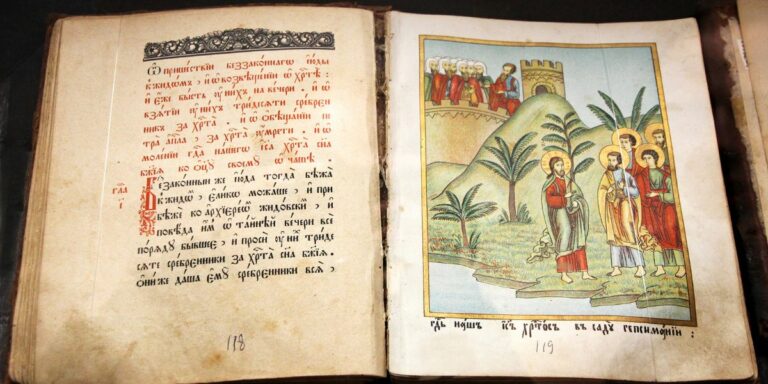 Ѿ пришествїи беззаконнагѡ їюды
к жидѡмъ , и ѡ возвѣщенїи ѡ хрⷭ҇тѣ :
и еже бысть ᲂу нихъ на вечери . и ѡ
взѧтїи ᲂу нихъ тридесѧти сребрен
никъ за хрⷭ҇та . и ѡ ѡбѣщанїи
тра апⷭ҇ла , за хрⷭ҇та ᲂумрети . и ѡ
моленїи гдⷭ҇а нашегѡ іс҃а хрⷭ҇та сн҃а
бж҃їѧ ко ѻц҃у своемꙋ ѡ чашѣ .
гла
і҃
Беззаконныи же їюда тогда бѣжа
к жидѡмъ , еликѡ можаше , и при
бѣже ко архїереѡ жидовски , и
повѣда имъ ѡ тайнѣй вечери всѐ
порѧду бывшее , и проси ᲂу ни триде
сѧте сребренники за хрⷭ҇та сн҃а бж҃їѧ .
Ѻни же даша емꙋ сребренники всѧ ,
118
гдⷭ҇ь нашъ іс҃ъ хрⷭ҇тосъ въ саду гепсиманїи :
119